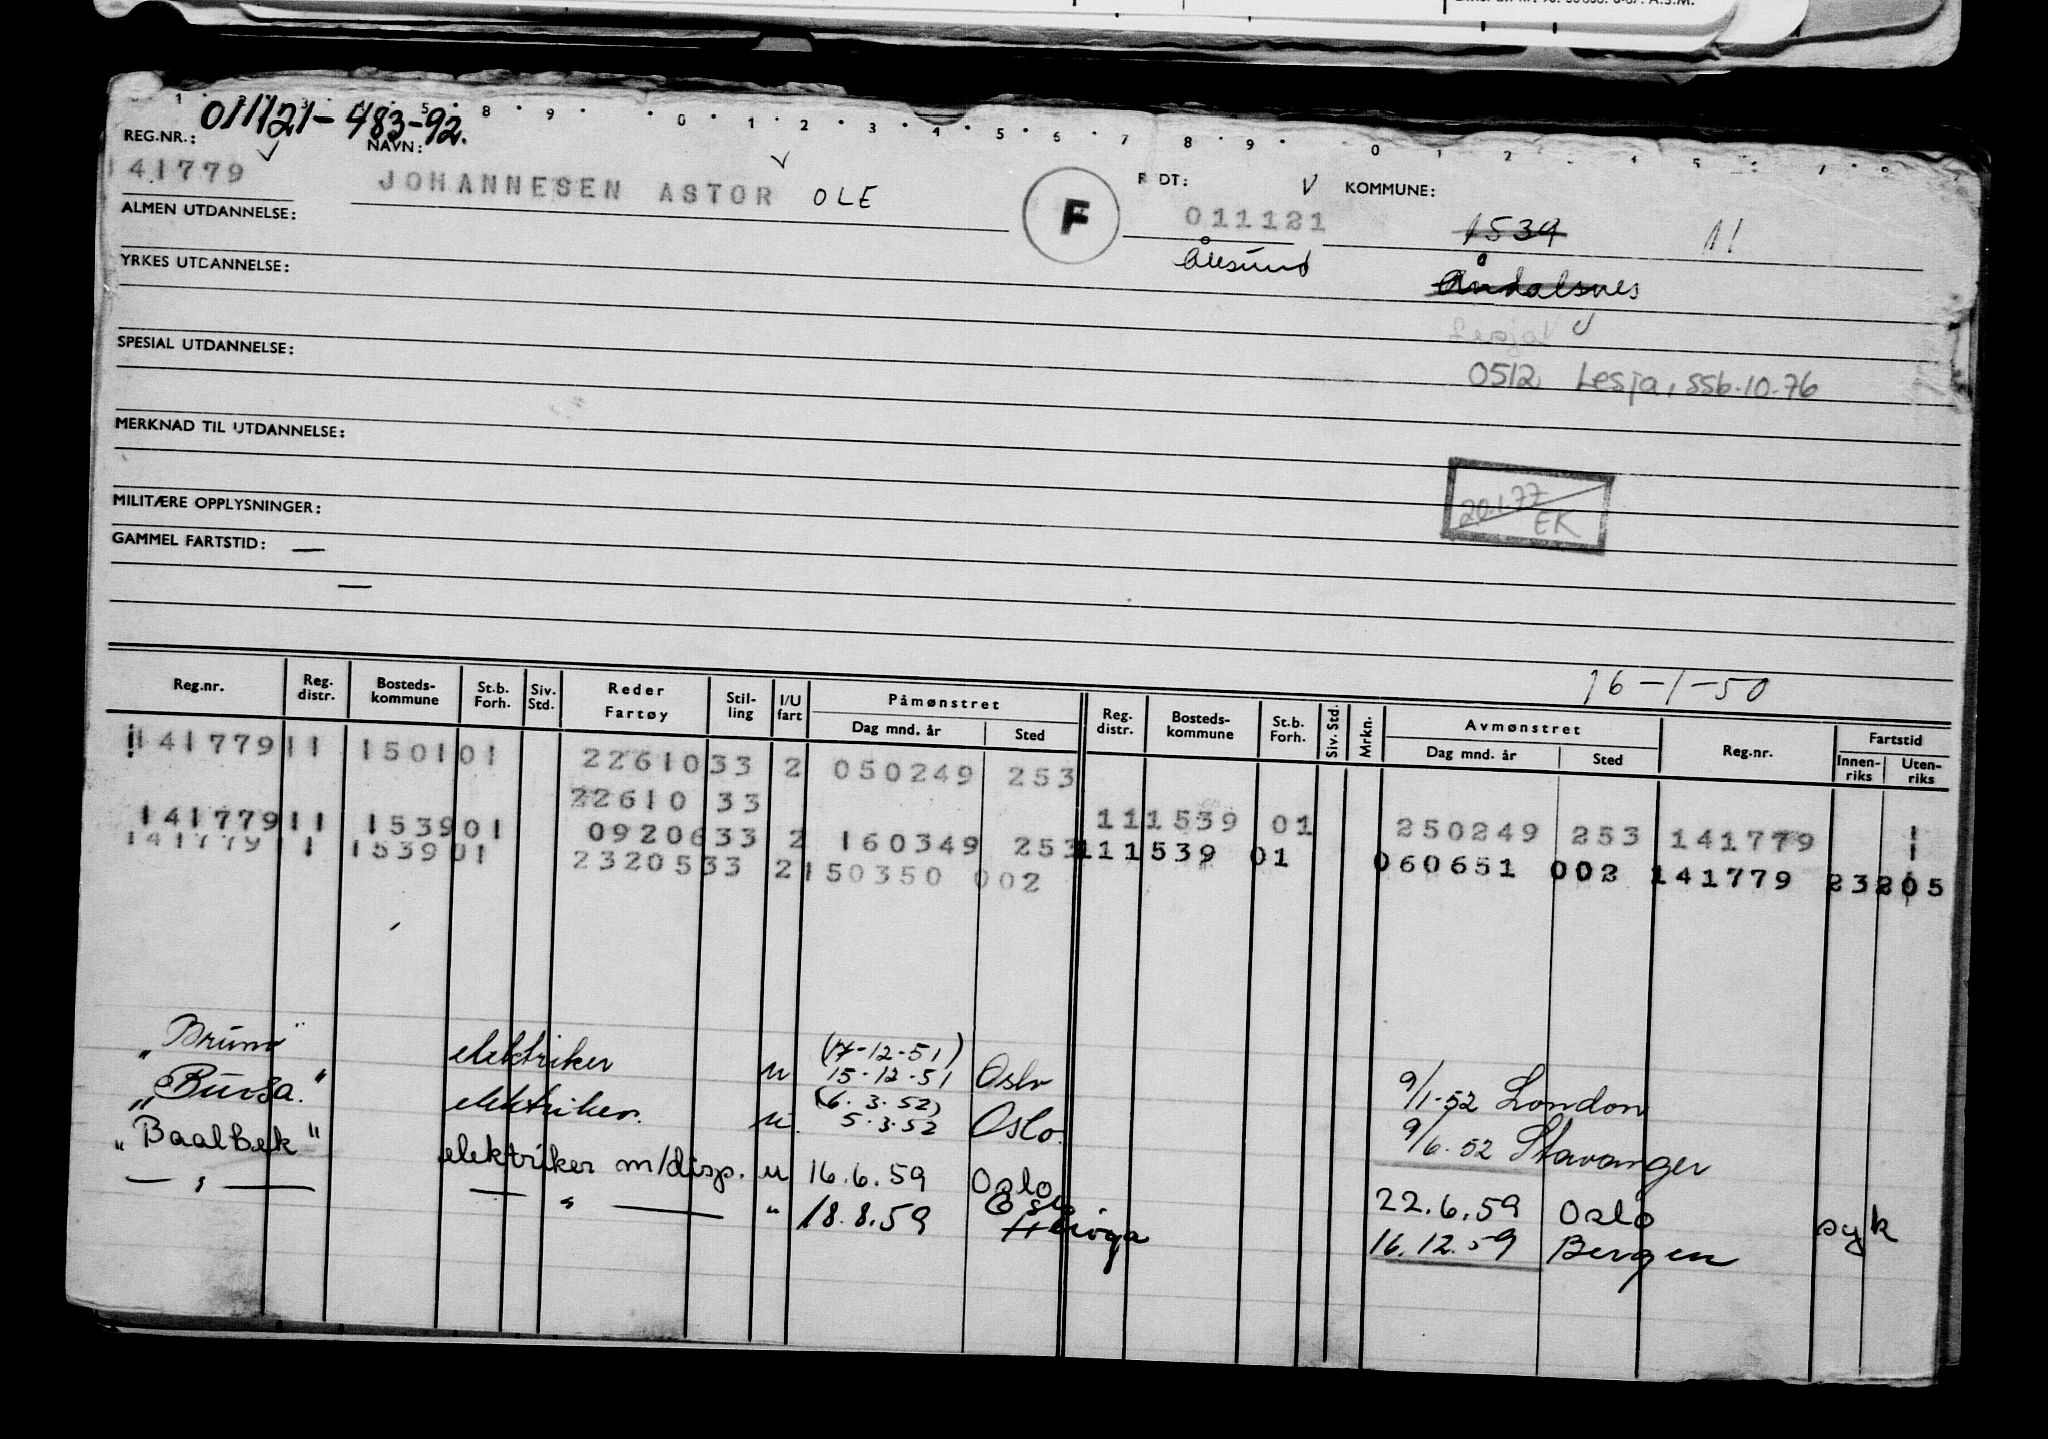 011121-483-92.
1 2 3 4 5 8 9 0 1 2 3 4 5 6 7 8 9 0 1 2 4 5
REG.NR.: NAVN: F.DT: KOMMUNE:
141779 JOHANNESEN ASTOR OLE F 011121 1539 11
ALMEN UTDANNELSE: Ålesund Åndalsnes
YRKES UTDANNELSE:
Lesja
SPESIAL UTDANNELSE: 0512 Lesja, ssb.10.76
MERKNAD TIL UTDANNELSE:
MILITÆRE OPPLYSNINGER: 20.1.77 EK
GAMMEL FARTSTID: —
—
16-1-50
Reg.nr. Reg. distr. Bosteds- kommune St.b. Forh. Siv. Std. Reder Fartøy Stil- ling I/U fart Påmønstret Dag mnd. år Sted Reg. distr. Bosteds- kommune St.b. Forh. Siv. Std. Mrkn. Avmønstret Dag mnd. år Sted Reg.nr. Fartstid Innen- riks Uten- riks
141779 11 1501 01 22610 33 2 050249 253
22610 33 11 1539 01 250249 253 141779 1
141779 11 1539 01 09206 33 2 160349 253 11 1539 01 060651 002 141779 23205
141779 11 1539 01 23205 33 2 150350 002
(17-12-51)
„Bruno" elektriker u 15-12-51 Oslo 9/1-52 London
(6.3.52)
„Bursa." elektriker. u. 5.3.52 Oslo. 9/6.52 Stavanger
„Baalbek" elektriker m/disp. u 16.6.59 Oslo 22.6.59 Oslo syk
— " — — " — " 18.8.59 Herøya 16.12.59 Bergen